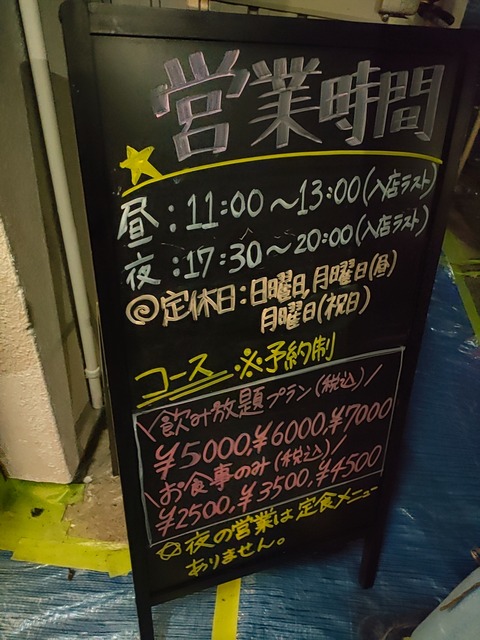 営業時間
昼:11:00～13:00(入店ラスト)
夜:17:30～20:00(入店ラスト)
◎定休日:日曜日,月曜日(昼)
月曜日(祝日)
コース ※予約制
\飲み放題プラン(税込)/
¥5000,¥6000,¥7000
\お食事のみ(税込)/
¥2500,¥3500,¥4500
☆夜の営業は定食メニュー
ありません。